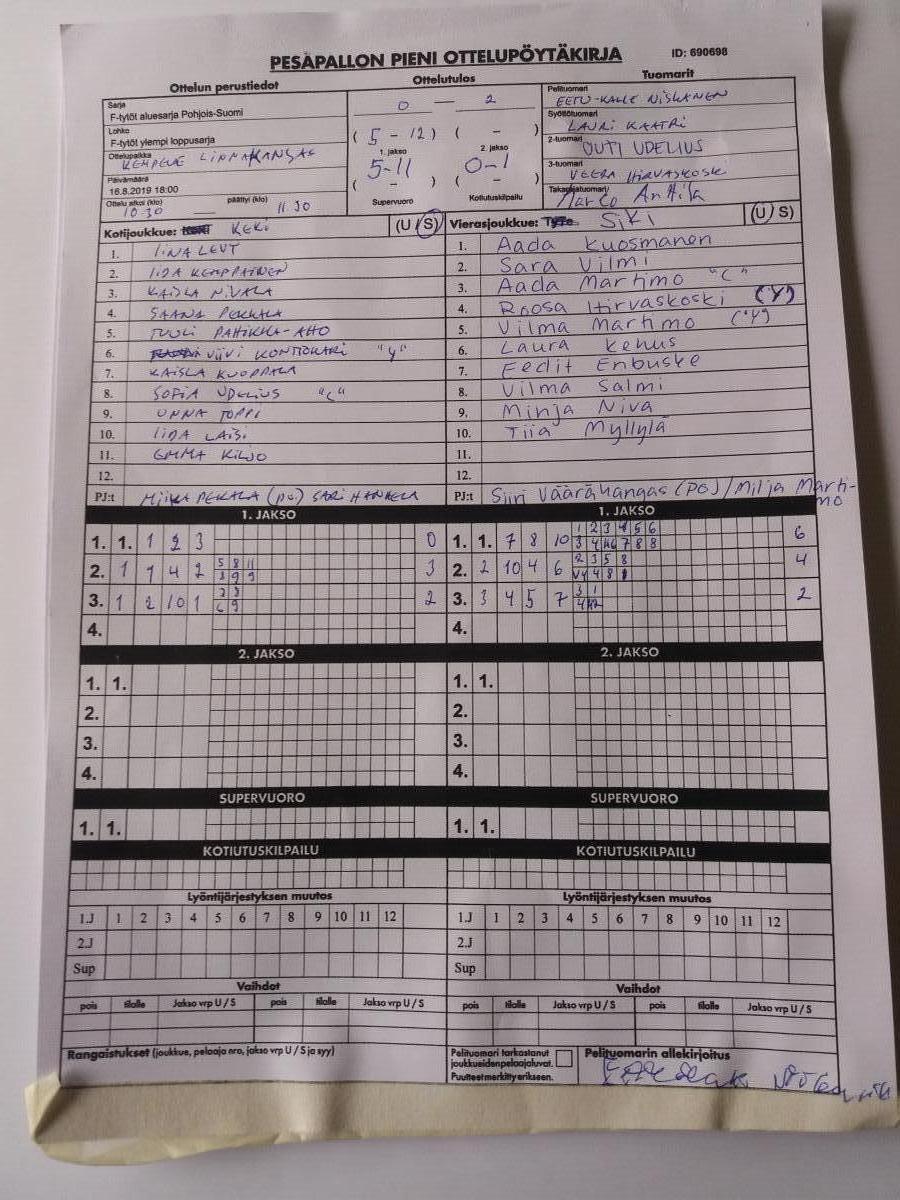 PESÄPALLON PIENI OTTELUPÖYTÄKIRJA ID: 690698
Ottelun perustiedot Ottelutulos Tuomarit
Sarja
F-tytöt aluesarja Pohjois-Suomi
Lohko
F-tytöt ylempi loppusarja
Ottelupaikka
KEMPELE LINNAKANGAS
Päivämäärä
16.8.2019 18:00
Ottelu alkoi (klo) päättyi (klo)
10.30 — 11.30
0 — 2
( 5 - 12 ) ( - )
1. jakso 2. jakso
5-11 0-1
( - ) ( - )
Supervuoro Kotiutuskilpailu
Pelituomari
EETU-KALLE NISKANEN
Syöttötuomari
LAURI KAATRI
2-tuomari
OUTI UDELIUS
3-tuomari
VEERA HIRVASKOSKI
Takarajatuomari
Marco Anttila
Kotijoukkue: KEKI (U / S) Vierasjoukkue: SiKi (U / S)
1. IINA LEVT
2. IIDA KEMPPAINEN
3. KAISLA NIVALA
4. SAANA PEKKALA
5. TUULI PAHIKKA-AHO
6. VIIVI KONTIOKARI "Y"
7. KAISLA KUOPPALA
8. SOFIA UDELIUS "C"
9. UNNA TOPPI
10. IIDA LAISI
11. EMMA KILJO
12.
PJ:t MIIKA PEKALA (PG) SARI HANKELA
1. Aada Kuosmanen
2. Sara Vilmi
3. Aada Martimo "C"
4. Roosa Hirvaskoski (Y)
5. Vilma Martimo ("Y)
6. Laura Kehus
7. Eedit Enbuske
8. Vilma Salmi
9. Minja Niva
10. Tiia Myllylä
11.
12.
PJ:t Siiri Väärähangas (PG) / Milja Marti-
mo
1. JAKSO 1. JAKSO
1. 1. 1 2 3 0
2. 1 1 4 2 5 8 11 3
3 9 9
3. 1 2 10 1 2
6 9
4.
1. 1. 7 8 10 1 2 3 4 5 6 6
2. 2 10 4 6 2 3 5 8 4
3. 3 4 5 7 3 1 2
4.
2. JAKSO 2. JAKSO
1. 1. 1. 1.
2. 2.
3. 3.
4. 4.
SUPERVUORO SUPERVUORO
1. 1. 1. 1.
KOTIUTUSKILPAILU KOTIUTUSKILPAILU
Lyöntijärjestyksen muutos Lyöntijärjestyksen muutos
1.J 1 2 3 4 5 6 7 8 9 10 11 12 1.J 1 2 3 4 5 6 7 8 9 10 11 12
2.J 2.J
Sup Sup
Vaihdot Vaihdot
pois tilalle Jakso vrp U / S pois tilalle Jakso vrp U / S pois tilalle Jakso vrp U / S pois tilalle Jakso vrp U / S
Rangaistukset (joukkue, pelaaja nro, jakso vrp U / S ja syy)
Pelituomari tarkastanut
joukkueidenpelaajaluvat.
Puutteet merkitty erikseen.
Pelituomarin allekirjoitus